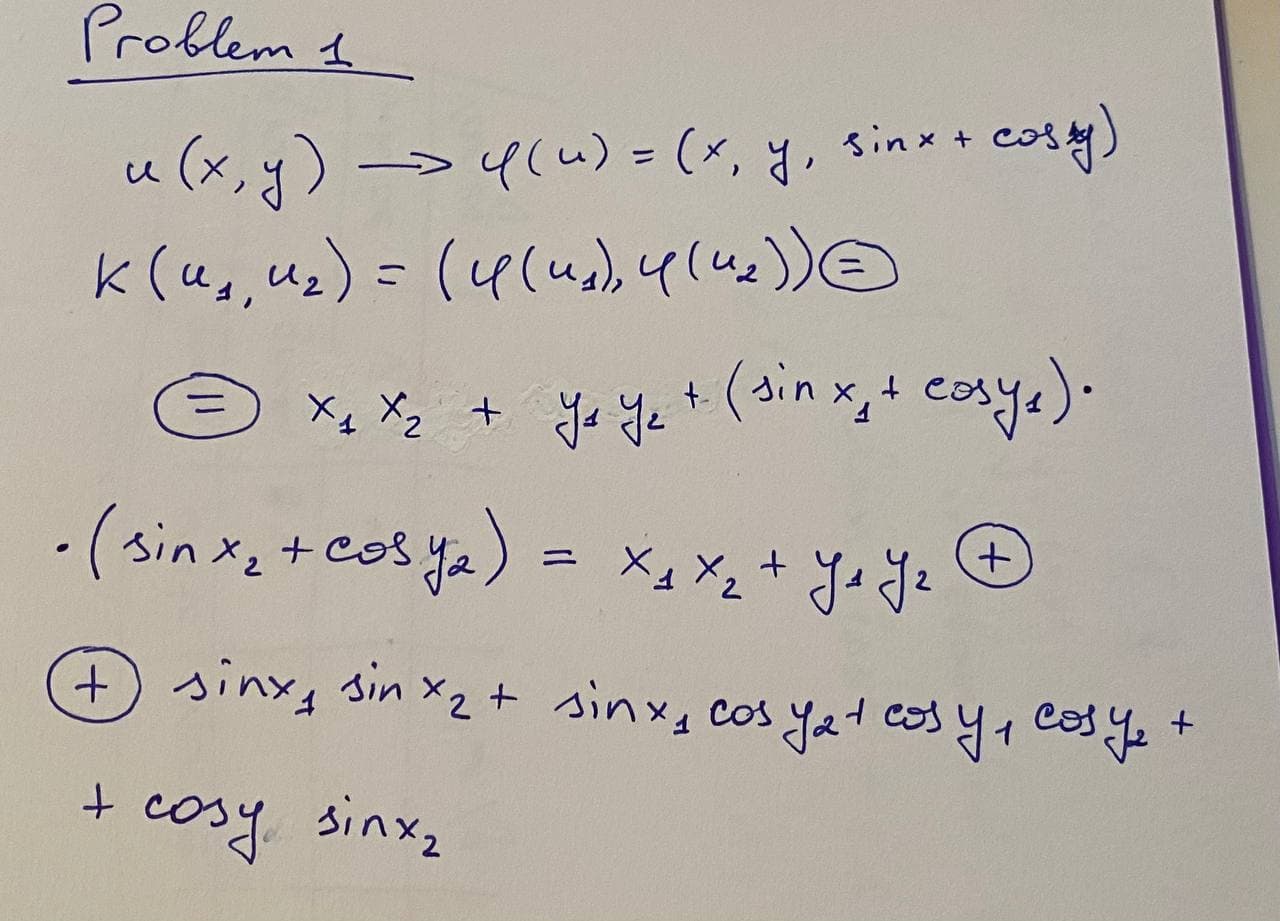 Problem 1
u(x,y) → φ(u) = (x, y, sin x + cos y)
K(u₁, u₂) = (φ(u₁), φ(u₂)) ⊜
⊜ x₁ x₂ + y₁ y₂ + (sin x₁ + cos y₁) ·
· (sin x₂ + cos y₂) = x₁ x₂ + y₁ y₂ ⊕
⊕ sin x₁ sin x₂ + sin x₁ cos y₂ + cos y₁ cos y₂ +
+ cos y sin x₂